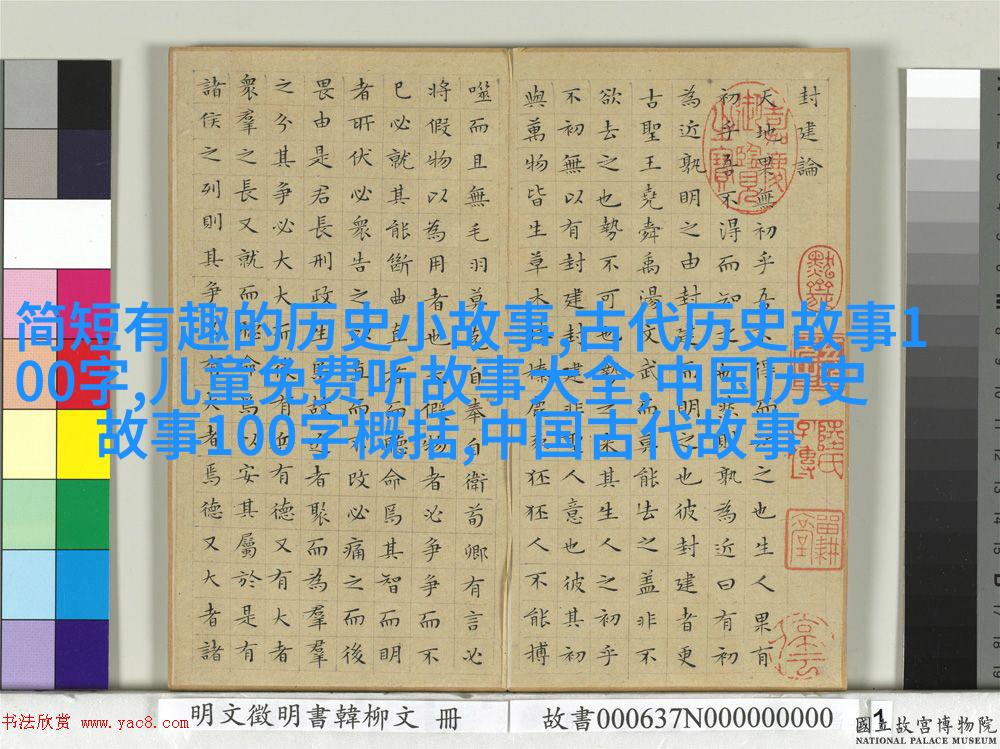 封建論
天地果無初乎吾不得而知之也生人果有
初乎吾不得而知之也然則孰為近曰有初
為近孰明之由封建而明之也彼封建者更
古聖王堯舜禹湯文武而莫能去之蓋非不
欲去之也勢不可也勢之來其生人之初乎
不初無以有封建封建非聖人意也彼其初
與萬物皆生草木榛榛狉狉人不能搏
噬而且無毛羽莫克自奉自衛荀卿有言必
將假物以為用者也夫假物者必爭爭而不
已必就其能斷曲直者而聽命焉其智而明
者所伏必衆告之以直而不改必痛之而後
畏由是君長刑政生焉故近者聚而為羣
之分其爭必大大而後有兵有德又有大者
衆羣之長又就而聽命焉以安其屬於是有
諸侯之列則其爭又有大者焉德又大者諸
简短有趣的历史小故事,古代历史故事1
00字,儿童免费听故事大全,中国历史
故事100字概括,中国古代故事
嘉慶御覽之寶
明文徵明書韓柳文 冊
故書000637N000000000
1
國立故宮博物院
NATIONAL PALACE MUSEUM
书法欣赏 www.yac8.com